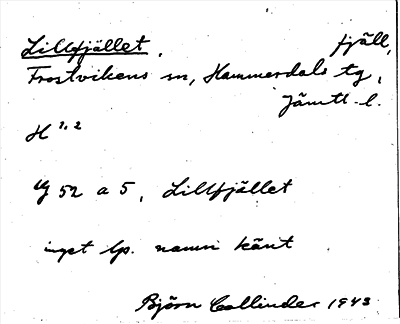 Lillfjället. fjäll,
Frostvikens sn, Hammerdals tg,
Jämtl. l.
H 1, 2
G 52 a 5, Lillfjället
inget lp. namn känt
Björn Collinder 1943